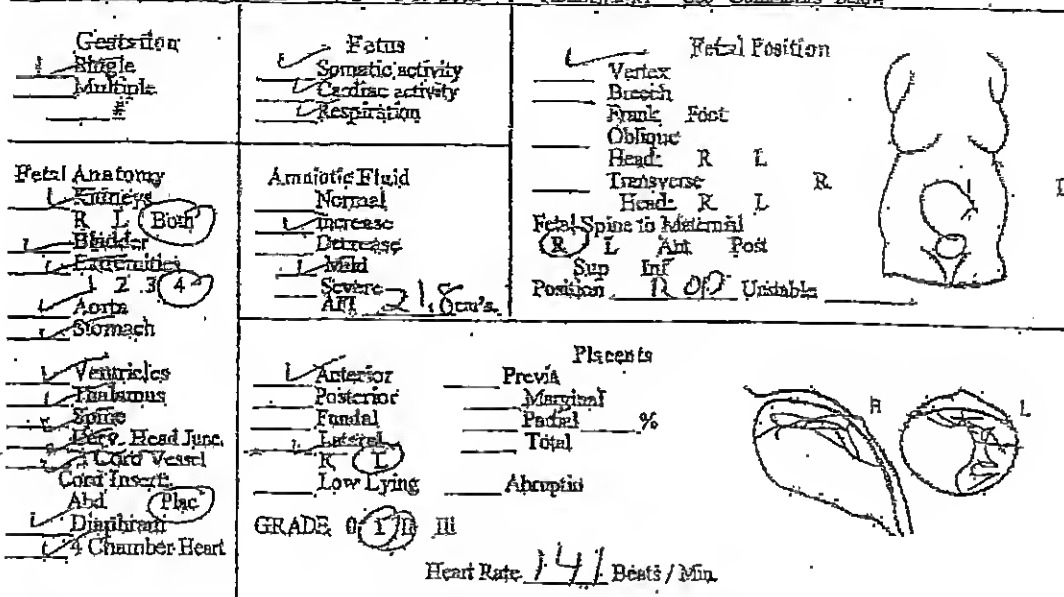 See Comments Below
Gestation
Single
Multiple
#
Fetus
Somatic activity
Cardiac activity
Respiration
Fetal Position
Vertex
Breech
Frank Foot
Oblique
Head: R L
Transverse R
Head: R L
Fetal Spine to Maternal
R L Ant Post
Sup Inf
Position ROP Unstable
L
Fetal Anatomy
Kidneys
R L Both
Bladder
Extremities
1 2 3 4
Aorta
Stomach
Ventricles
Thalamus
Spine
Cerv. Head Junc.
3 Cord Vessel
Cord Insert:
Abd Plac
Diaphram
4 Chamber Heart
Amniotic Fluid
Normal
Increase
Decrease
Mild
Severe
AFI 21.8 cm's.
Placenta
Anterior Previa
Posterior Marginal
Fundal Partial %
Lateral Total
R L
Low Lying Abruptio
GRADE 0 I II III
R L
Heart Rate 141 Beats / Min.